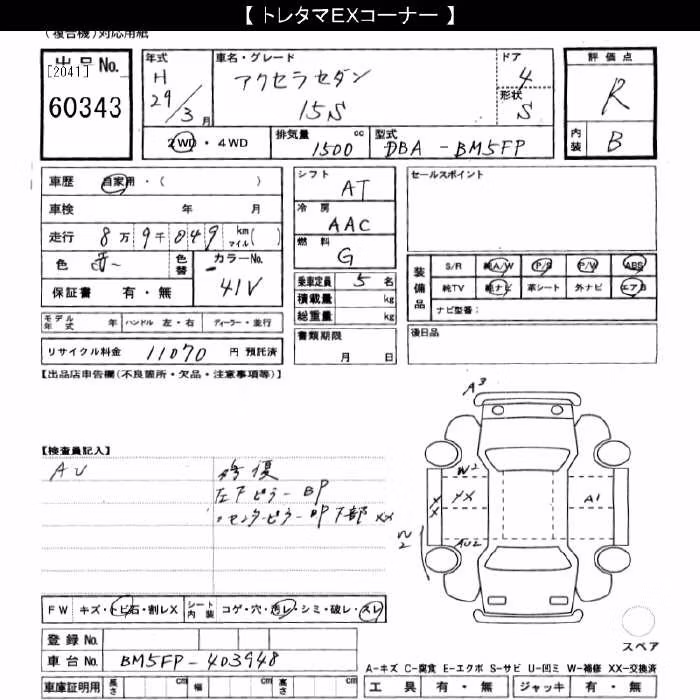 【 トレタマEXコーナー 】
(複合機)対応用紙
出品No.
[2041]
60343
年式
H
29/3月
車名・グレード
アクセラセダン
15S
ドア
4
形状
S
評価点
R
内装
B
2WD・4WD
排気量 1500 cc
型式 DBA-BM5FP
車歴 自家用・( )
車検 年 月
走行 8万9千049 km マイル( )
色
色替
カラーNo. 41V
保証書 有・無
モデル年式 年
ハンドル 左・右
ディーラー・並行
リサイクル料金 11070 円 預託済
シフト AT
冷房 AAC
燃料 G
乗車定員 5 名
積載量 kg
総重量 kg
書類期限
月 日
セールスポイント
装備品
S/R 純A/W P/S P/W ABS
純TV 純ナビ 革シート 外ナビ エアB
ナビ型番:
後日品
【出品店申告欄(不良箇所・欠品・注意事項等)】
【検査員記入】
AU
修復
左Fピラー BP
センターピラー BP 下部 XX
A3
W2
XX
YX
A1
W2
AU2
FW キズ・トビ石・割レX
シート内装 コゲ・穴・汚レ・シミ・破レ・スレ
登録No.
車台No. BM5FP-403948
車庫証明用 長さ cm 幅 cm 高さ cm
スペア
A-キズ C-腐食 E-エクボ S-サビ U-凹ミ W-補修 XX-交換済
工具 有・無 ジャッキ 有・無